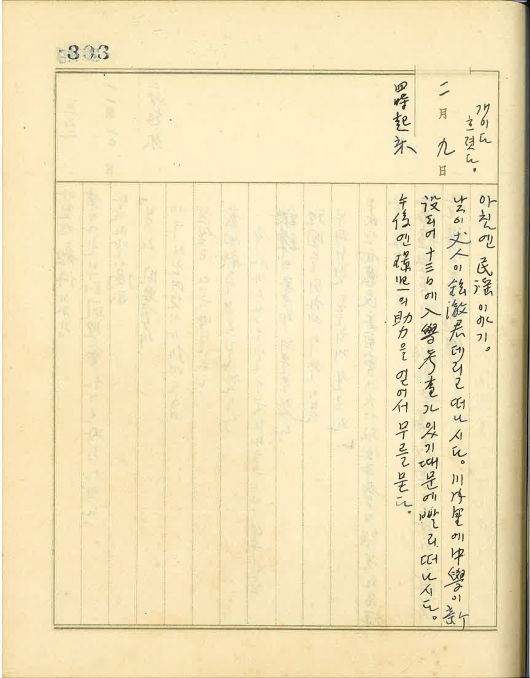 303
개이다
흐렸다.
二月 九日
四時起床
아침엔 民謠이야기.
낮이 丈人이 鉉澈君 데리고 떠나시다. 에 中學이 新
設되어 十三日에 入學考査가 있기 때문에 빨리 떠나시다.
午後엔 의 助力을 얻어서 무를 묻다.